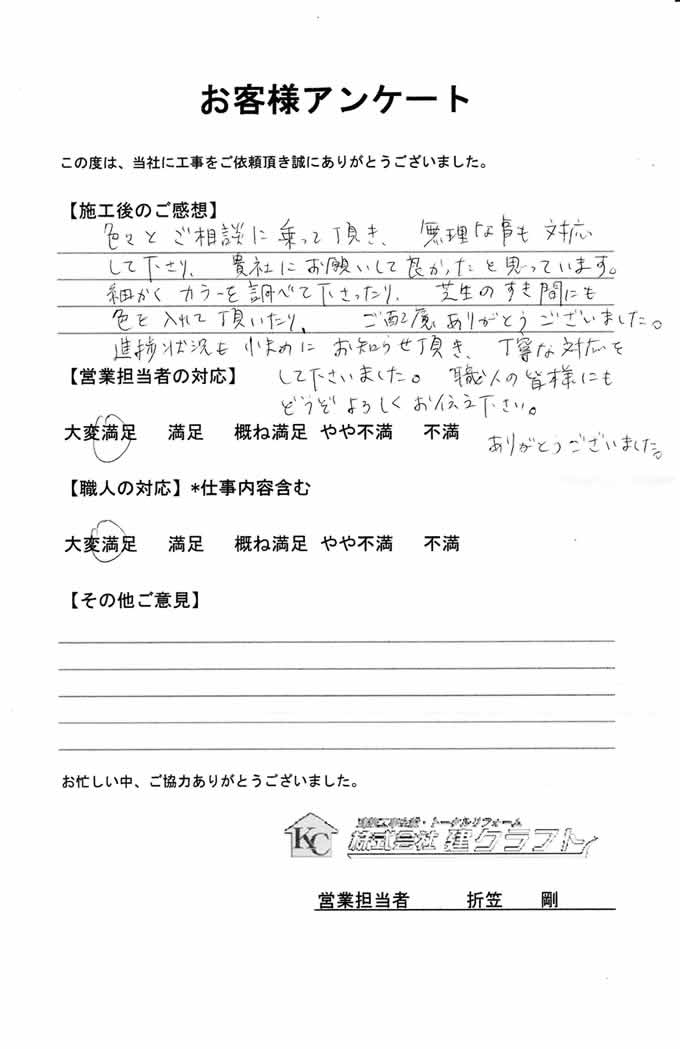 お客様アンケート
この度は、当社に工事をご依頼頂き誠にありがとうございました。
【施工後のご感想】
色々とご相談に乗って頂き、無理な事も対応
して下さり、貴社にお願いして良かったと思っています。
細かくカラーを調べて下さったり、芝生のすき間にも
色を入れて頂いたり、ご配慮ありがとうございました。
進捗状況も小まめにお知らせ頂き、丁寧な対応を
【営業担当者の対応】
して下さいました。職人の皆様にも
どうぞよろしくお伝え下さい。
大変満足 満足 概ね満足 やや不満 不満
ありがとうございました。
【職人の対応】*仕事内容含む
大変満足 満足 概ね満足 やや不満 不満
【その他ご意見】
お忙しい中、ご協力ありがとうございました。
KC
・トータルリフォーム
株式会社 建クラフト
営業担当者 折笠 剛